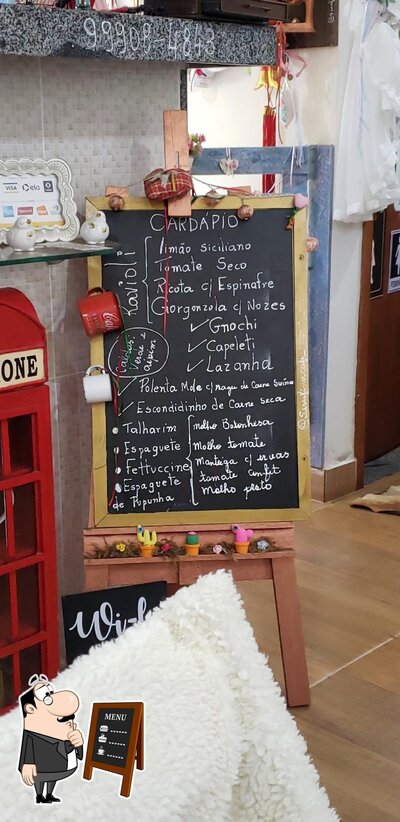 99908-4843
VISA elo
CARDÁPIO
Ravioli
limão siciliano
Tomate Seco
Ricota c/ Espinafre
Gorgonzola c/ Nozes
Gnochi
Capeleti
Lazanha
Polenta Mole c/ ragu de Carne Suína
Escondidinho de Carne seca
Talharim
Espaguete
Fettuccine
Espaguete de Pupunha
Molho Bolonhesa
Molho tomate
Manteiga c/ ervas
tomate confit
Molho pesto
ONE
Wi
MENU